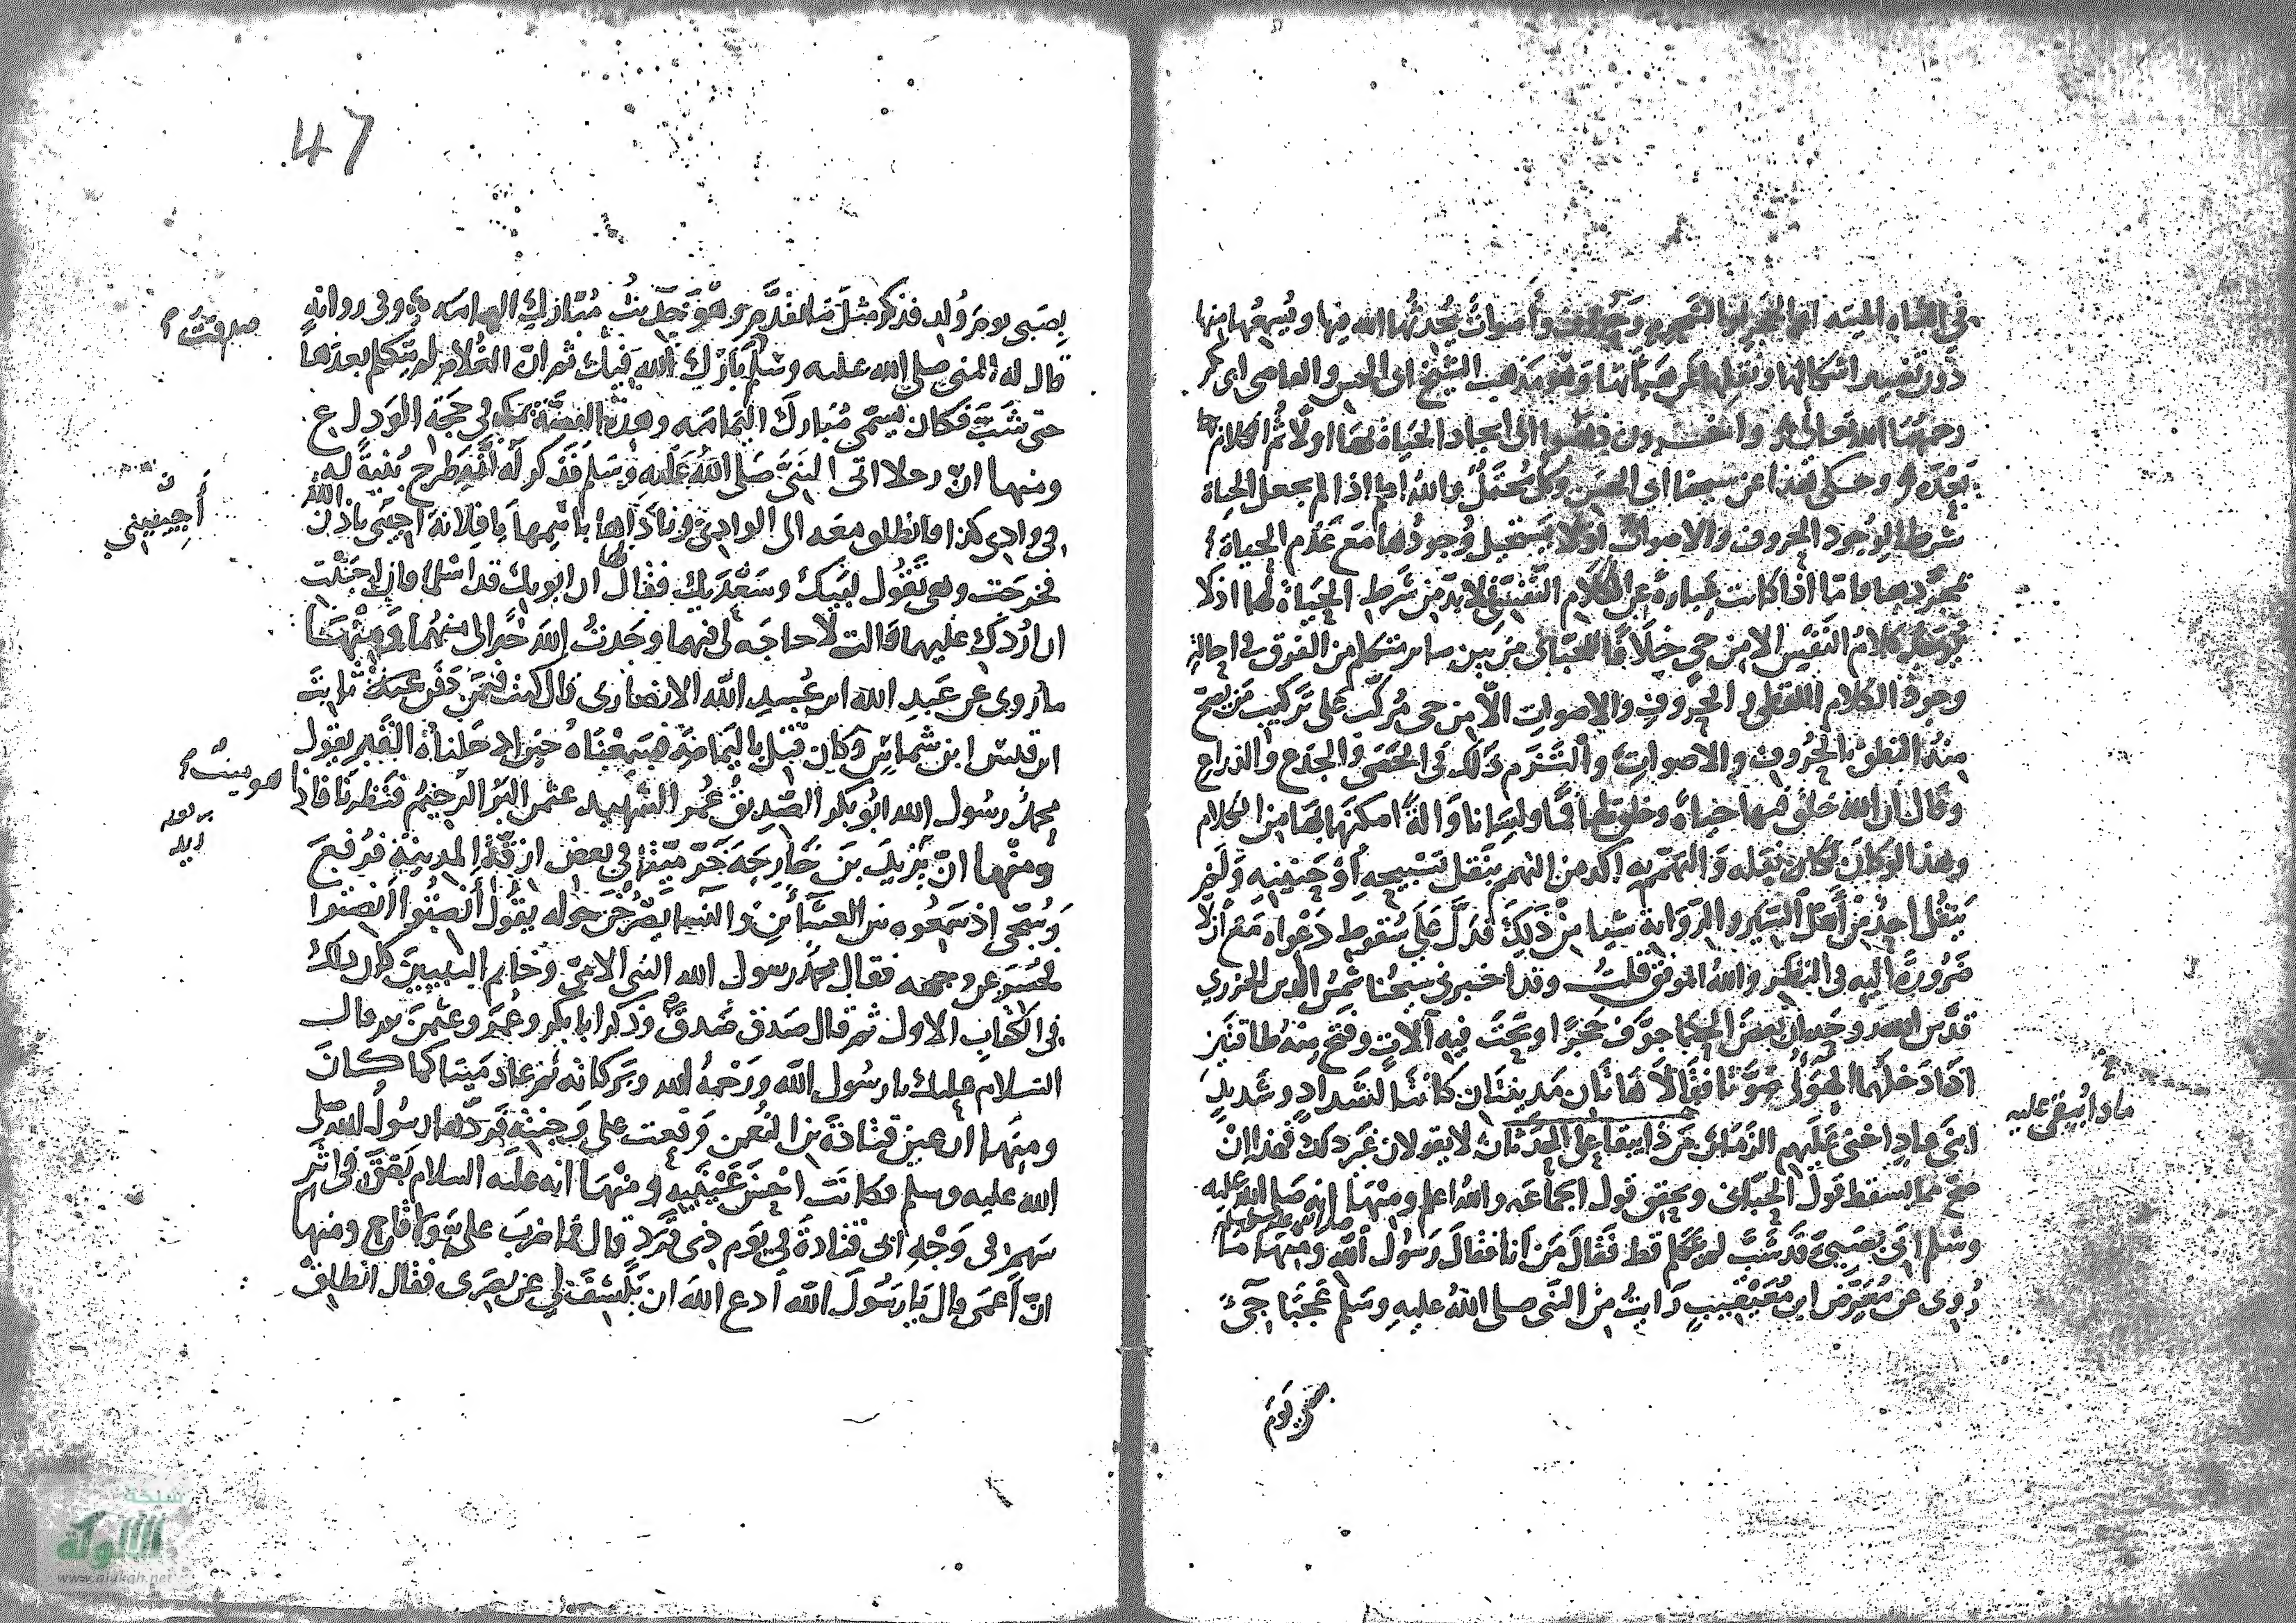 في الشاة الميته او الحجر او الشجر وحروف وأصوات يحدثها الله فيها ويسمعها منها
دون تغيير اشكالها ونقلها عن هيأتها وهو مذهب الشيخ ابى الحسن والقاضى ابى بكر
رحمهما الله تعالى واخرون ذهبوا الى ايجاد الحياة بها اولا ثم الكلام
بعده وحكى هذا عن شيخنا ابى الحسن وكل محتمل والله اعلم اذا لم يجعل الحياة
شرطا لوجود الحروف والاصوات اذ لا يستحيل وجودها مع عدم الحياة
بمجردها فاما اذا كانت عبارة عن الكلام النفسى فلا بد من شرط الحياة لها اذ لا
يوجد كلام النفس الا من حي خلافا للجبائى من بين سائر متكلمى الفرق فى احالة
وجود الكلام اللفظى والحروف والاصوات الا من حى مركب على تركيب من يصح
منه النطق بالحروف والاصوات والتزم ذلك فى الحصى والجذع والذراع
وقال ان الله خلق فيها حياة وخلق لها فما ولسانا وآلة امكنها بها من الكلام
وهذا لو كان لكان نقله والتهمم به اكد من التهمم بنقل تسبيحه أو حنينه ولم
ينقل احد من أهل السير والرواية شيا من ذلك فدل على سقوط دعواه مع أن لا
ضرورة اليه فى النظر والله الموفق قلت وقد اخبرنى شيخنا شمس الدين الجزري
قدس الله روحه ان بعض الحكما جوف حجرا ونحت فيه آلات وفتح منه طاقتين
اذا دخلهما الهوى صوتا فقالا هاتان مدينتان كانتا لشداد وشديد
ابنى عاد اخنى عليهم الزمان من ذا يبقا على الحدثان لا يقولان غير ذلك فهذا ان
ماذا يبقى عليه
صح مما يسقط قول الجبائى ويحقق قول الجماعه والله اعلم ومنها انه صلى الله عليه
وسلم اتى بصبي قد شب لم يتكلم قط فقال من أنا فقال رسول الله ومنها ما
روي عن معرض ابن معيقيب رايت من النبى صلى الله عليه وسلم عجبا جئ
بصبى يوم
47
بصبى يوم ولد فذكر مثل ما تقدم وهو حديث مبارك اليمامه وفى روايه
صدقت
قال له النبى صلى الله عليه وسلم بارك الله فيك ثم ان الغلام لم يتكلم بعدها
حتى شب فكان يسمى مبارك اليمامه وهذه القصة بمكه فى حجة الوداع
ومنها ان رجلا اتى النبى صلى الله عليه وسلم فذكر له أنه طرح بنية له
فى وادى كذا فانطلق معه الى الوادى وناداها باسمها يا فلانة اجيبى باذن الله
أجيبيني
فخرجت وهى تقول لبيك وسعديك فقال لها ان ابويك قد اسلما فان احببت
ان اردك عليهما قالت لا حاجه لى فيهما وجدت الله خيرا لى منهما ومنها
ما روى عن عبد الله ابن عبيد الله الانصارى قال كنت فيمن دفن ثابت
ابن قيس ابن شماس وكان قتل باليمامة فسمعناه حين ادخلناه القبر يقول
محمد رسول الله ابو بكر الصديق عمر الشهيد عثمن البر الرحيم فنظرنا فاذا هو ميت
ومنها ان يزيد بن خارجه خر ميتا في بعض ازقة المدينة فرفع
زيد
وسجى اذ سمعوه بين العشائين والنسا يصرخن حوله يقول أنصتوا انصتوا
فحسر عن وجهه فقال محمد رسول الله النبى الامى وخاتم النبيين كان ذلك
فى الكتاب الاول ثم قال صدق صدق وذكر ابا بكر وعمر وعثمن ثم قال
السلام عليك يا رسول الله ورحمة الله وبركاته ثم عاد ميتا كما كان
ومنها ان عين قتادة بن النعمن وقعت على وجنته فردها رسول الله صلى
الله عليه وسلم فكانت احسن عينيه ومنها انه عليه السلام بصق فى اثر
سهم فى وجه ابى قتادة في يوم ذى قرد قال فما ضرب علي ولا قاح ومنها
ان أعمى قال يا رسول الله أدع الله ان يكشف لي عن بصرى فقال انطلق
شبكة
الألوكة
www.alukah.net